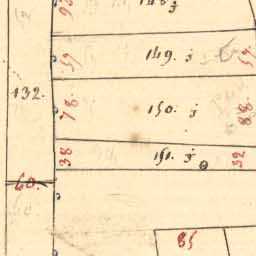 93 148 j
59 149. j 57
132.
78 150. j 88.
38 151. j 32
60.
60
85